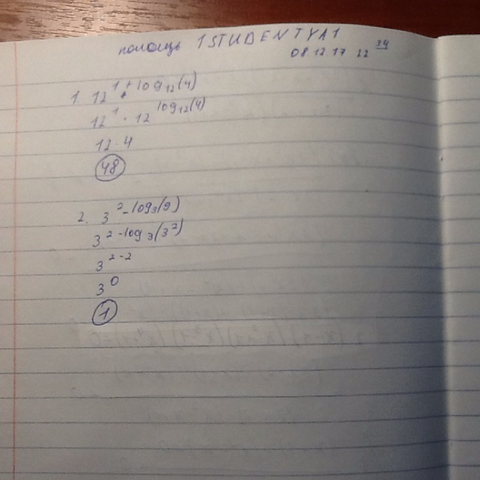 помощь 1STUDENTYA1
08 12 17 22 24
1. 12^1+log12(4)
12^1 · 12^log12(4)
12·4
48
2. 3^2-log3(9)
3^2-log3(3^2)
3^2-2
3^0
1